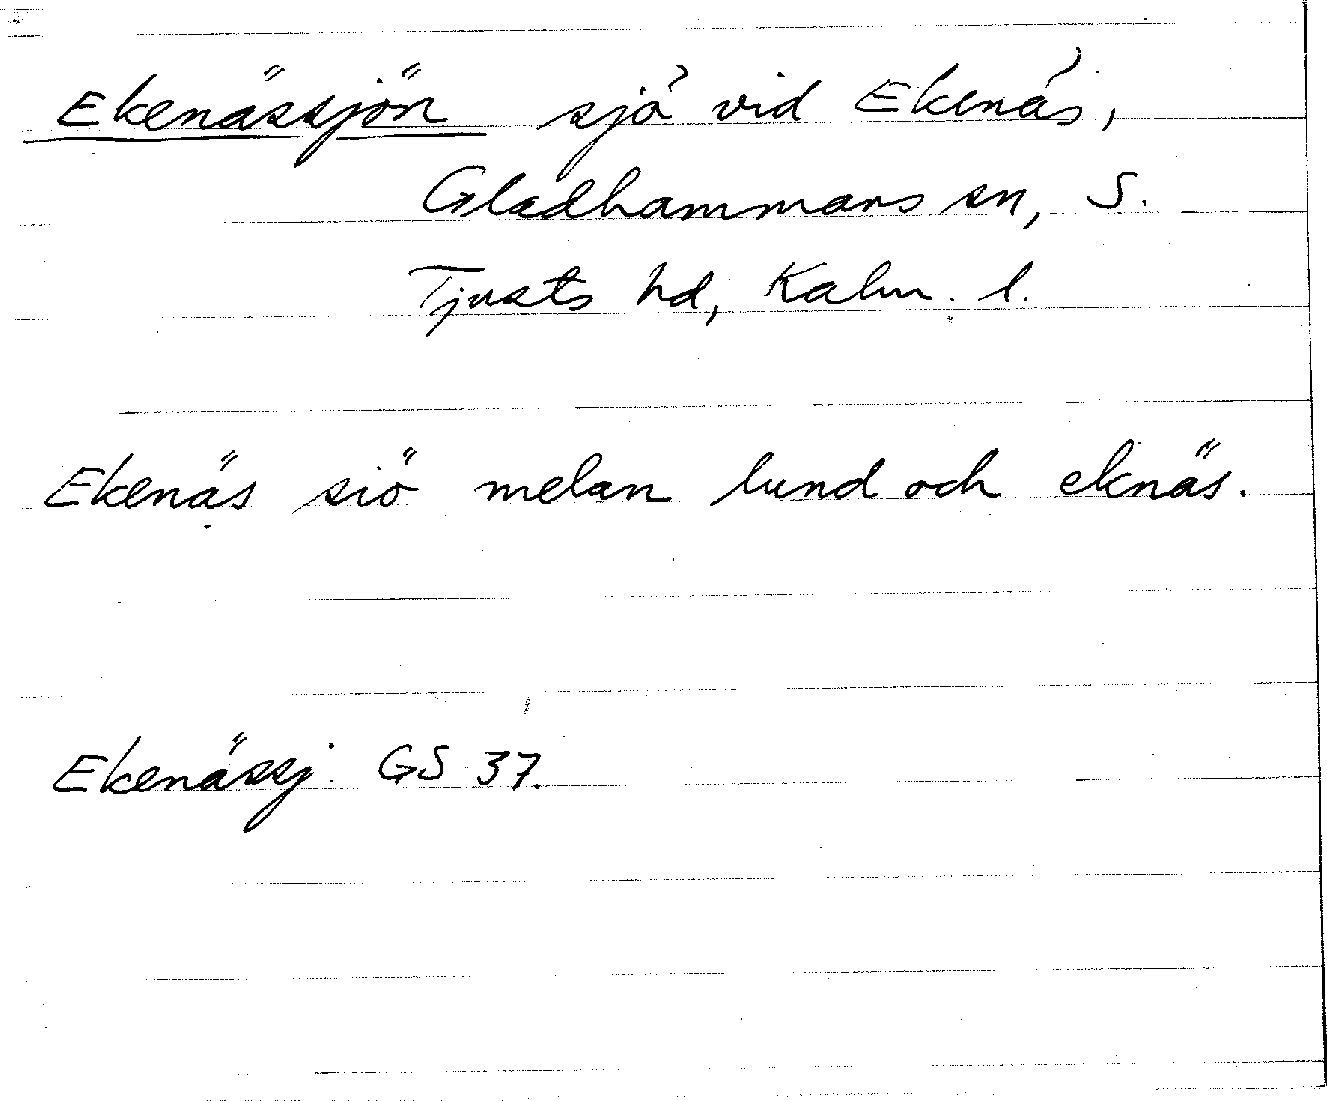 Ekenässjön sjö vid Ekenäs,
Gladhammars sn, S.
Tjusts hd, Kalm. l.
Ekenäs siö melan lund och eknäs.
Ekenässj. GS 37.